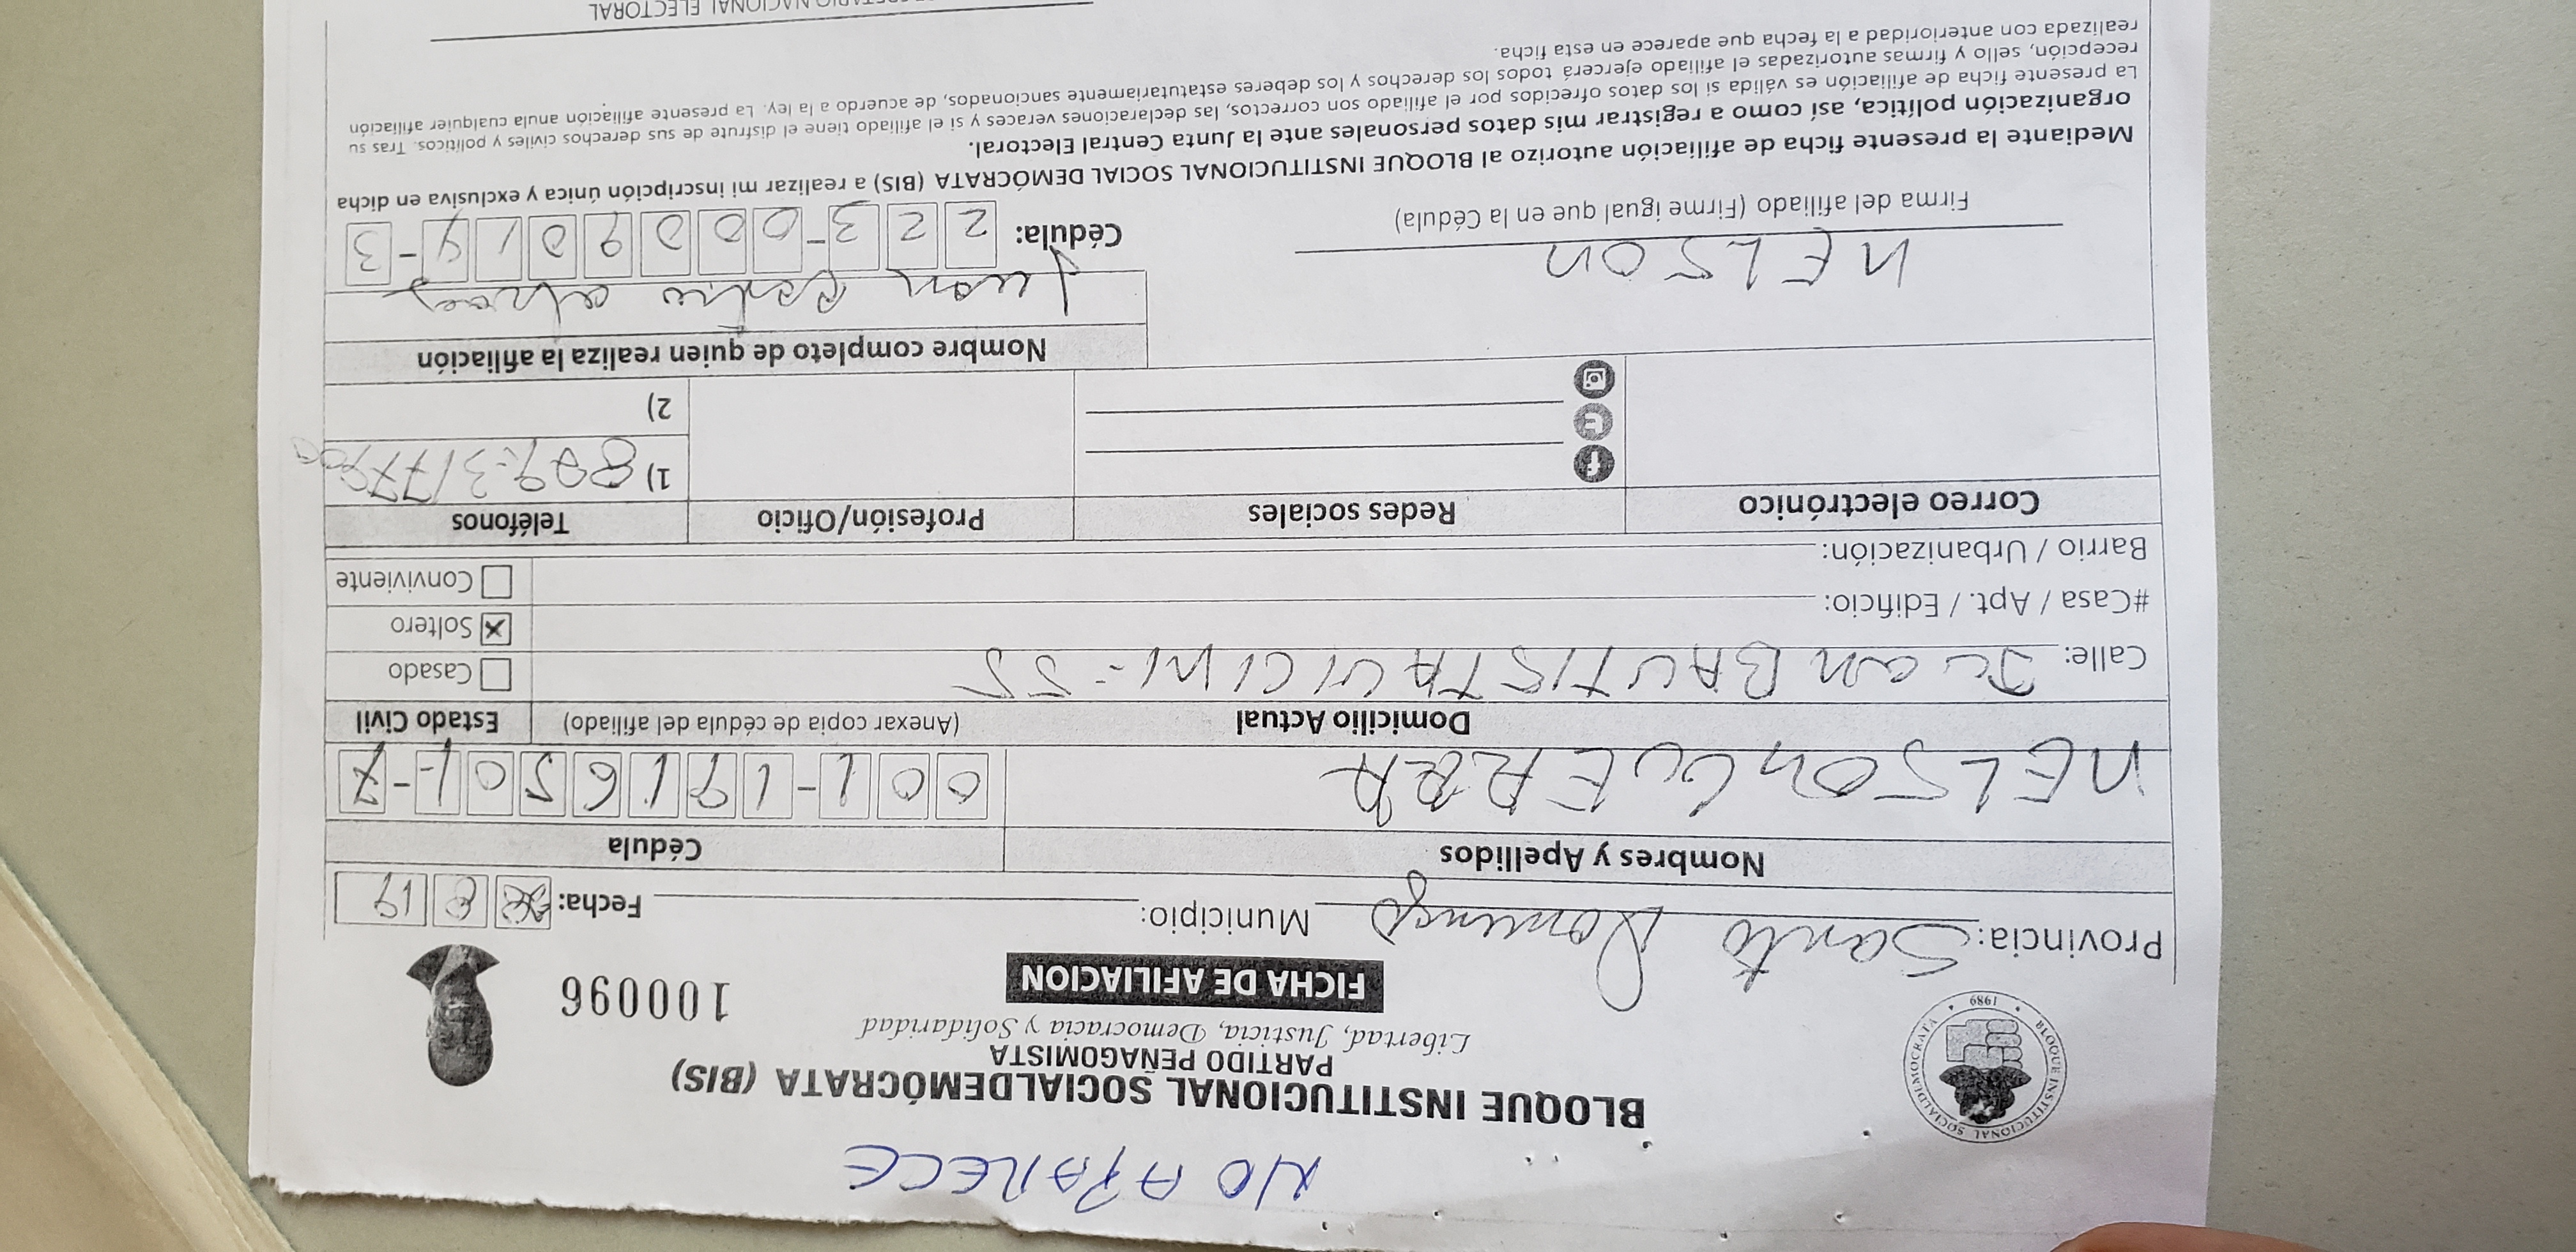 NO APARECE
BLOQUE INSTITUCIONAL SOCIALDEMÓCRATA (BIS)
PARTIDO PEÑAGOMISTA
Libertad, Justicia, Democracia y Solidaridad
BLOQUE INSTITUCIONAL SOCIALDEMOCRATA
1989
FICHA DE AFILIACION
100096
Provincia: Santo Domingo Municipio: Fecha: 8 19
Nombres y Apellidos Cédula
NELSON GUERRA 001-1916501-7
Domicilio Actual (Anexar copia de cédula del afiliado) Estado Civil
Calle: Juan BAUTISTA VICINI - 55 Casado
#Casa / Apt. / Edificio: Soltero
Barrio / Urbanización: Conviviente
Correo electrónico Redes sociales Profesión/Oficio Teléfonos
1) 809-317
2)
Nombre completo de quien realiza la afiliación
Juan
NELSON
Firma del afiliado (Firme igual que en la Cédula)
Cédula: 223-0009019-3
Mediante la presente ficha de afiliación autorizo al BLOQUE INSTITUCIONAL SOCIAL DEMÓCRATA (BIS) a realizar mi inscripción única y exclusiva en dicha
organización política, así como a registrar mis datos personales ante la Junta Central Electoral.
La presente ficha de afiliación es válida si los datos ofrecidos por el afiliado son correctos, las declaraciones veraces y si el afiliado tiene el disfrute de sus derechos civiles y políticos. Tras su
recepción, sello y firmas autorizadas el afiliado ejercerá todos los derechos y los deberes estatutariamente sancionados, de acuerdo a la ley. La presente afiliación anula cualquier afiliación
realizada con anterioridad a la fecha que aparece en esta ficha.
NACIONAL ELECTORAL